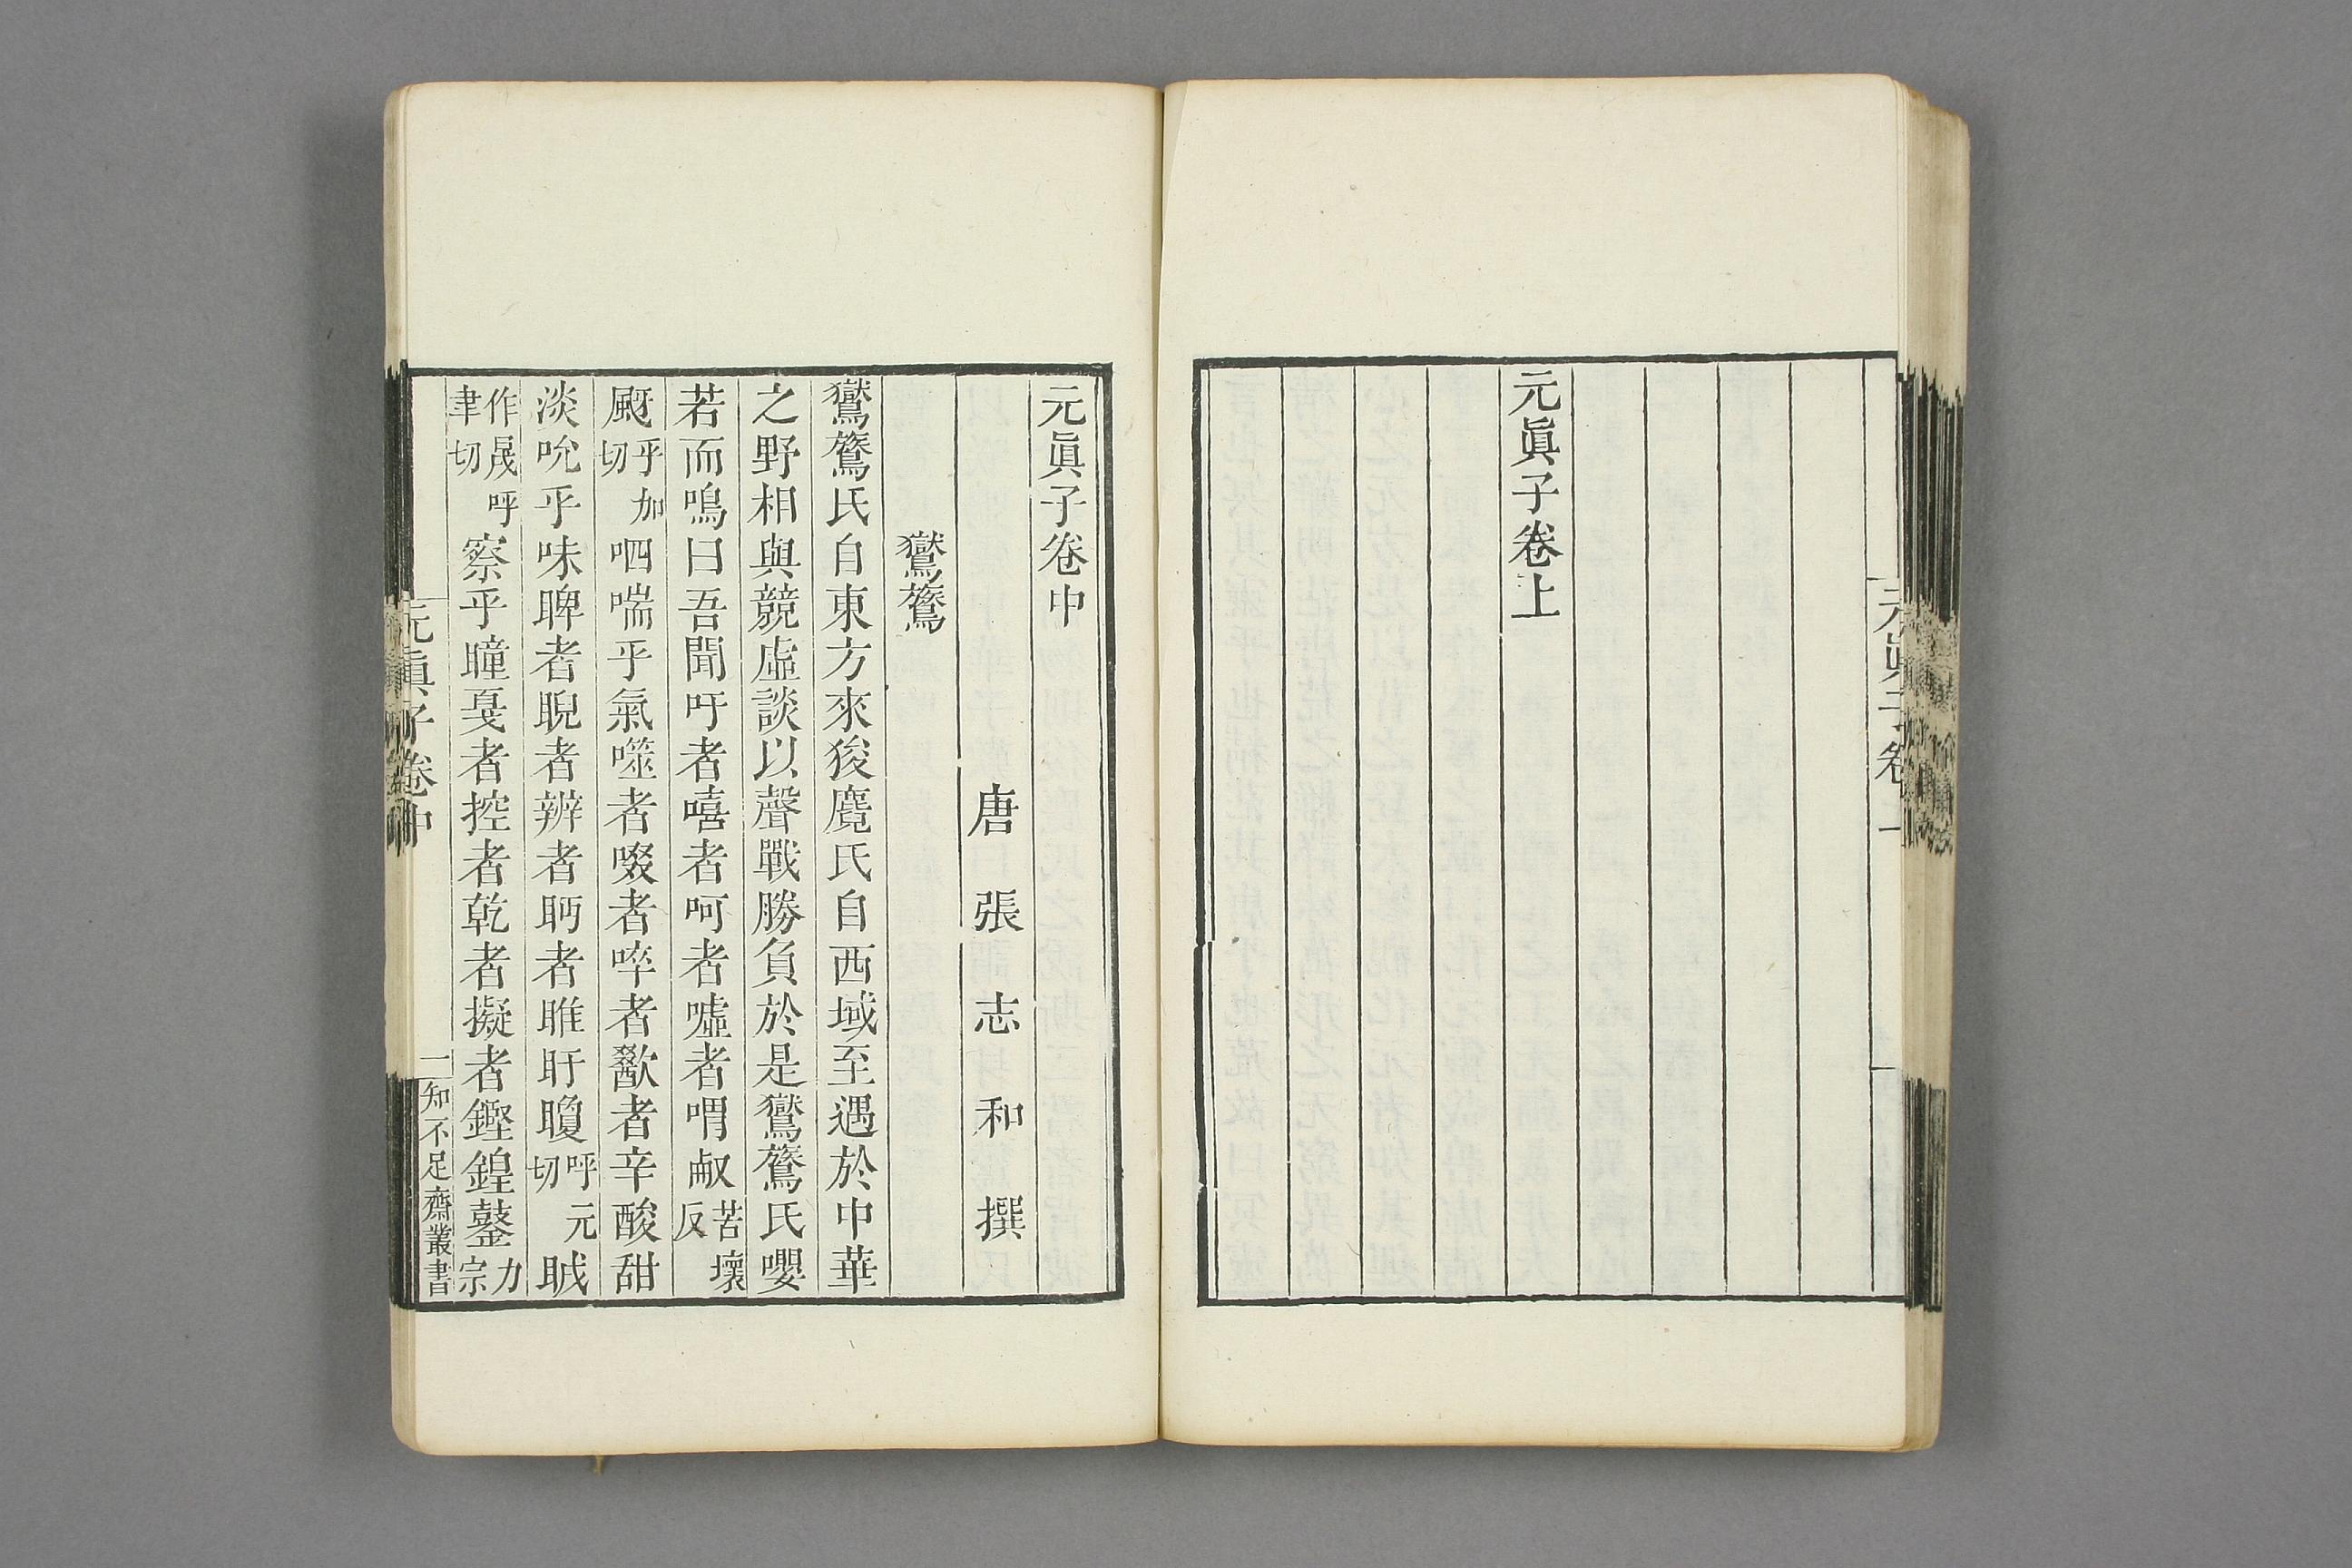 元眞子卷上
元眞子卷中
唐張志和撰
鸑鷟
鸑鷟氏自東方來狻麑氏自西域至遇於中華
之野相與競虛談以聲戰勝負於是鸑鷟氏嚶
若而鳴曰吾聞吁者嘻者呵者噓者喟㕟苦壞反
颬乎加切呬喘乎氣噬者啜者啐者歠者辛酸甜
淡吮乎味睥者睨者辨者眄者睢盱瞍呼元切䀕
作晟呼聿切察乎瞳戞者控者乾者擬者鏗鍠鼞力宗
元眞子卷中
一
知不足齋叢書